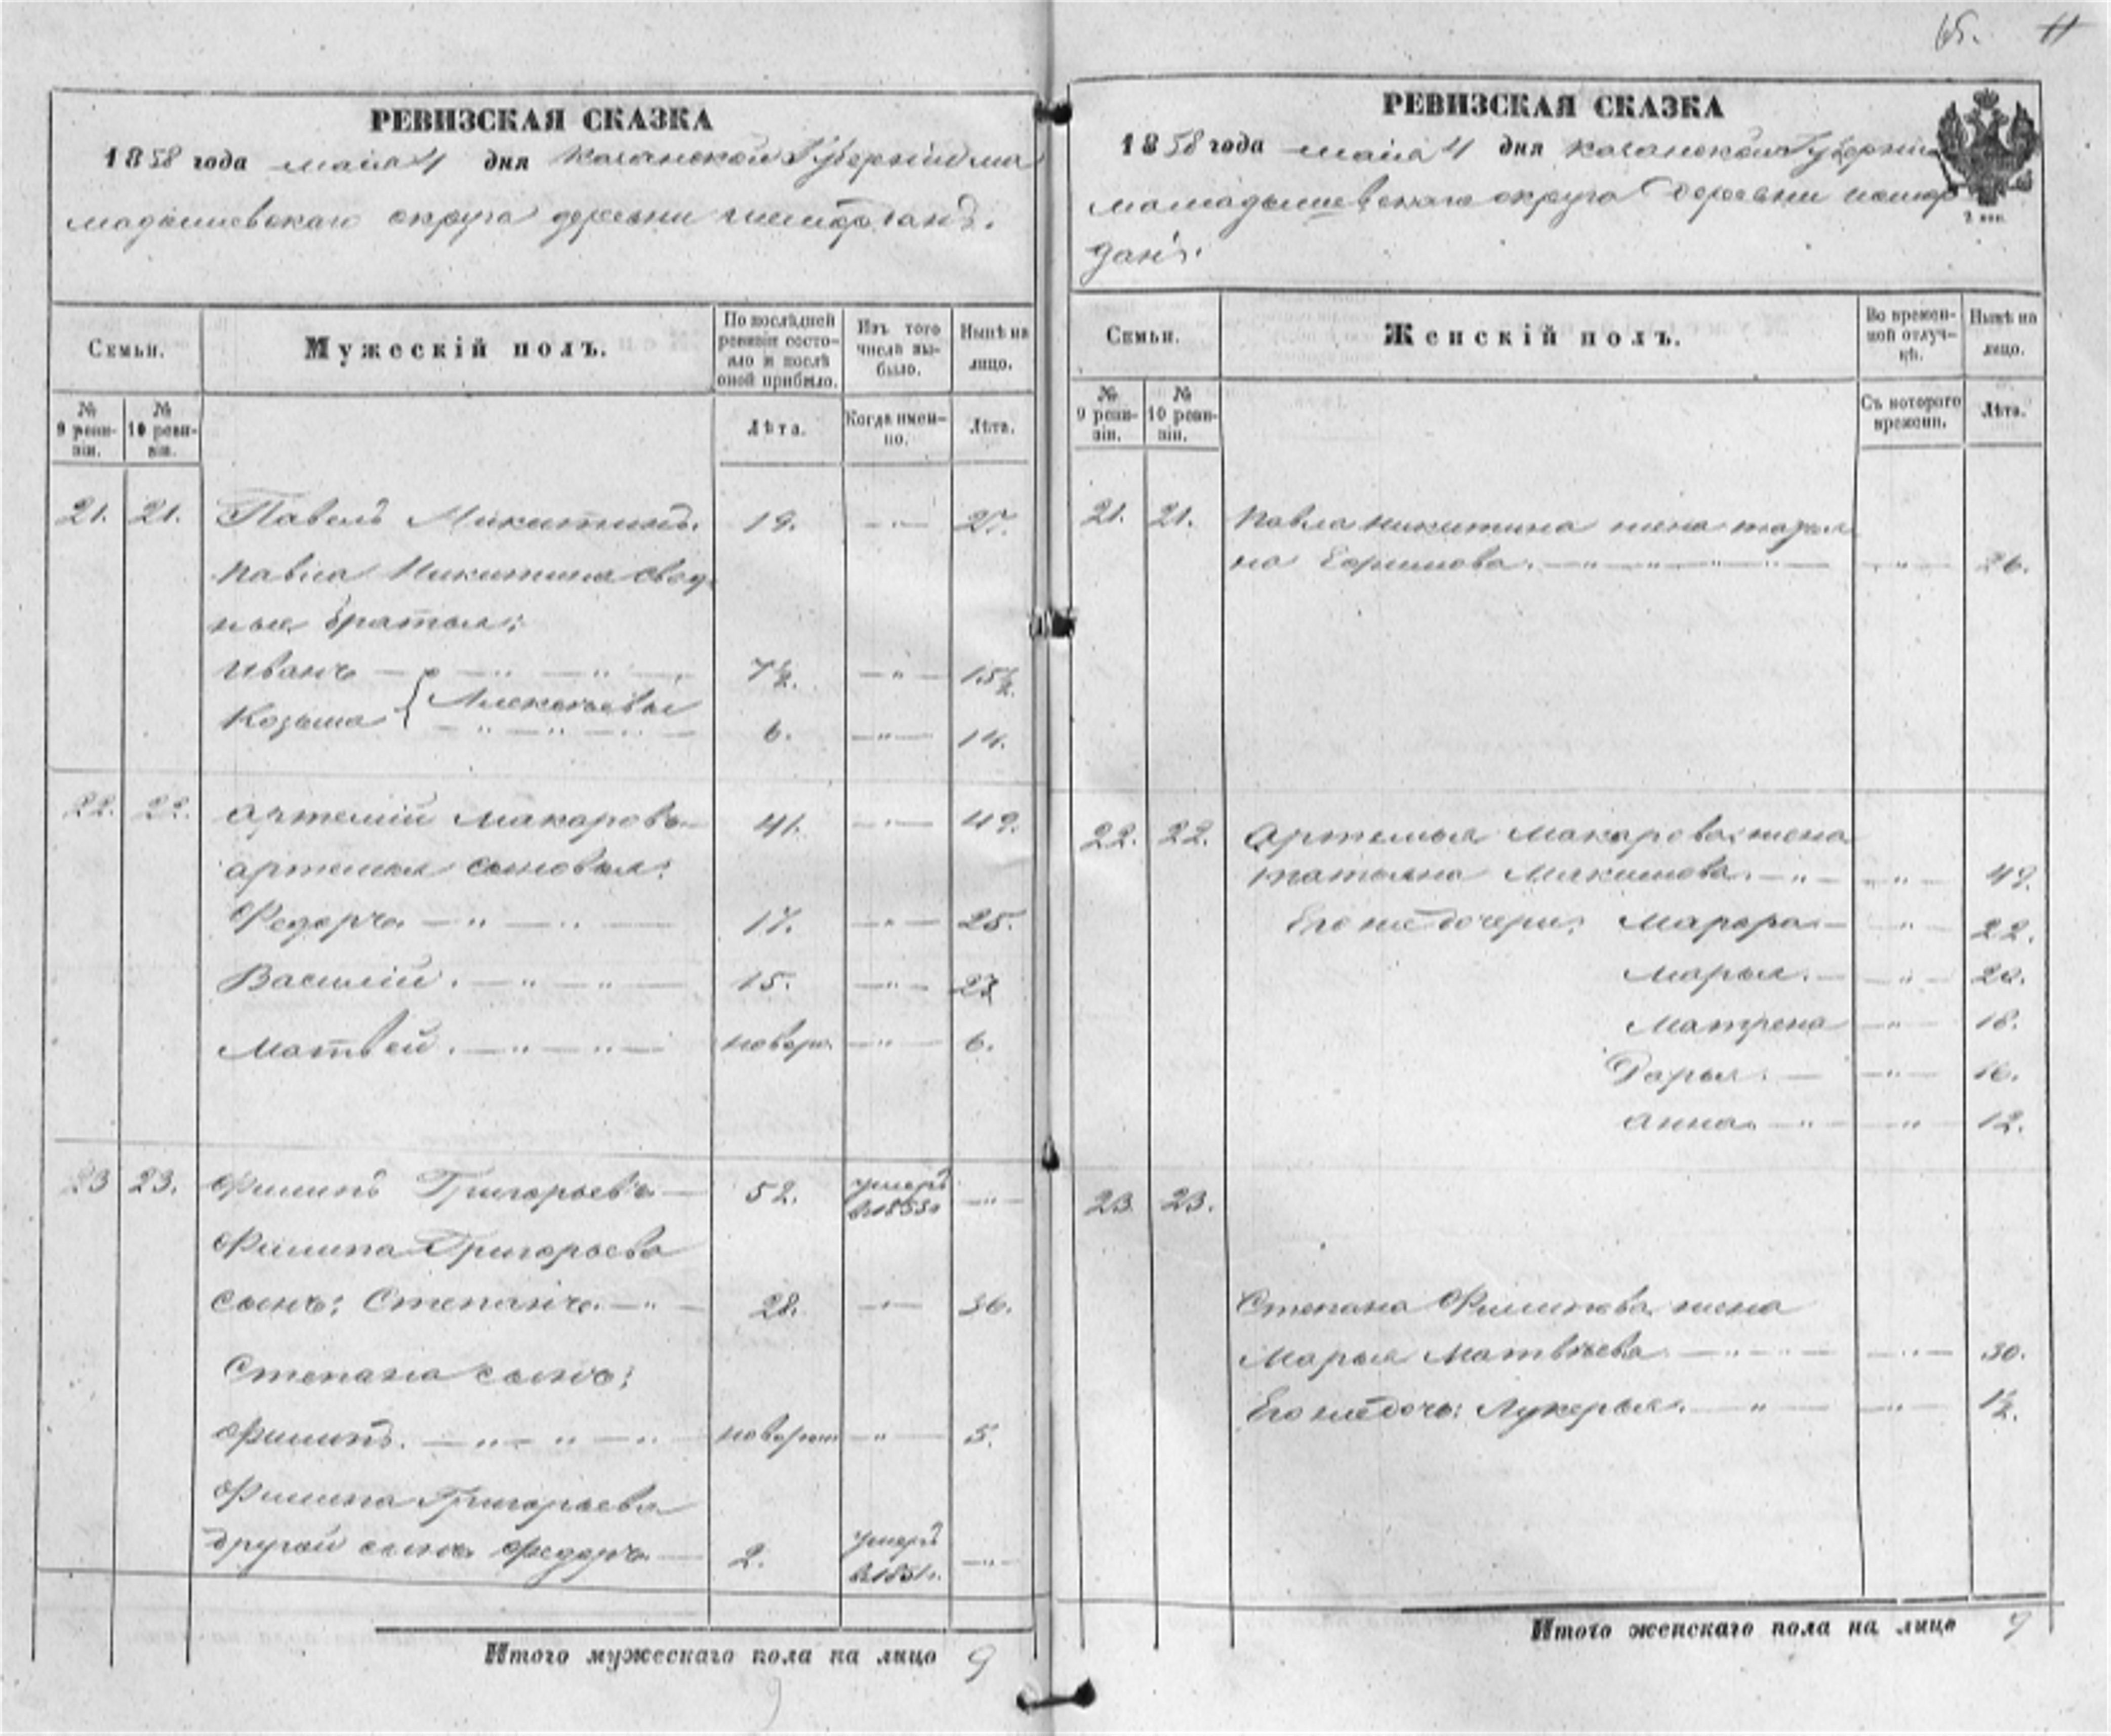 15.
РЕВИЗСКАЯ СКАЗКА
1858 года мая 4 дня Казанской Губернии Ма
мадышевскаго округа деревни
Семьи.
Мужескій полъ.
По послѣдней ревизіи состояло и послѣ оной прибыло.
Изъ того числа выбыло.
Нынѣ на лицо.
№ 9 ревизіи.
№ 10 ревизіи.
Лѣта.
Когда именно.
Лѣта.
21. 21. Павелъ Никитинъ. 19. — " — 27.
Павла Никитина свод
ные братья:
Иванъ — " — " — 7½. — " — 15½.
Козьма { Алексѣевы 6. — " — 14.
22. 22. Артемій Макаровъ 41. — " — 49.
Артемья сыновья:
Федоръ — " — " — 17. — " — 25.
Василій. — " — " — 15. — " — 23
Матвей. — " — " — новорж. — " — 6.
23 23. Филипъ Григорьевъ — 52. умеръ в 1853 г. — " —
Филипа Григорьева
сынъ: Степанъ. — " — 28. — " — 36.
Степана сынъ:
Филипъ. — " — " — " новорож — " — 5.
Филипа Григорьева
другой сынъ Федоръ — 2. умеръ в 1851 г. — " —
Итого мужескаго пола на лицо 9
РЕВИЗСКАЯ СКАЗКА
1858 года мая 4 дня Казанской Губерніи
Мамадышевскаго округа деревни
данъ.
2 коп.
Семьи.
Женскій полъ.
Во временной отлучкѣ.
Нынѣ на лицо.
№ 9 ревизіи.
№ 10 ревизіи.
Съ котораго времени.
Лѣта.
21. 21. Павла Никитина жена
Ефимова. — " — " — " — " — — " — 26.
22. 22. Артемья Макарова жена
Татьяна Макимова. — " — — " — 49.
Его же дочери: Марфа — — " — 22.
Марья. — — " — 20.
Матрена — " — 18.
Дарья. — — " — 16.
Анна. — " — — " — 12.
23. 23.
Степана Филипова жена
Марья Матвѣева — " — " — — " — 30.
Его же дочь: Лукерья. — " — " — 1½.
Итого женскаго пола на лицо 9